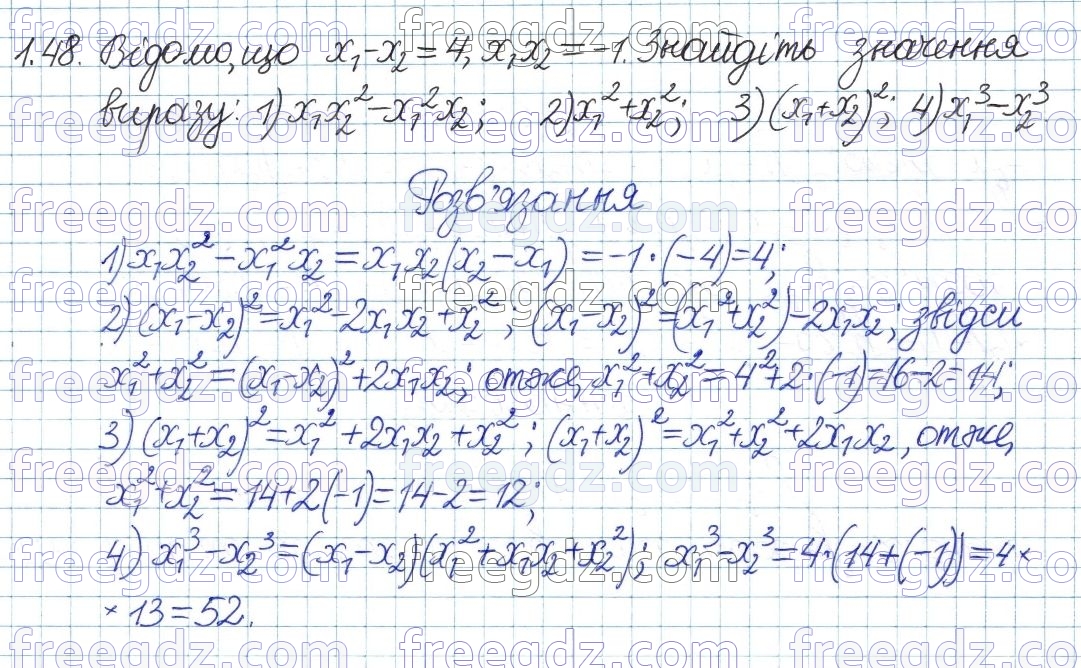 1.48. Відомо, що x₁-x₂=4, x₁x₂=-1. Знайдіть значення
виразу: 1) x₁x₂²-x₁²x₂; 2) x₁²+x₂²; 3) (x₁+x₂)²; 4) x₁³-x₂³.
Розв'язання
1) x₁x₂²-x₁²x₂=x₁x₂(x₂-x₁)=-1·(-4)=4;
2) (x₁-x₂)²=x₁²-2x₁x₂+x₂²; (x₁-x₂)²=(x₁²+x₂²)-2x₁x₂; звідси
x₁²+x₂²=(x₁-x₂)²+2x₁x₂; отже, x₁²+x₂²=4²+2·(-1)=16-2=14;
3) (x₁+x₂)²=x₁²+2x₁x₂+x₂²; (x₁+x₂)²=x₁²+x₂²+2x₁x₂, отже,
x₁²+x₂²=14+2(-1)=14-2=12;
4) x₁³-x₂³=(x₁-x₂)(x₁²+x₁x₂+x₂²); x₁³-x₂³=4·(14+(-1))=4×
×13=52.
freegdz.com